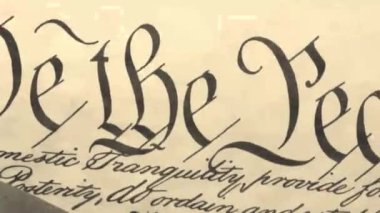 We the Peo
omestic Tranquility, provide fo
Posterity, do ordain and est